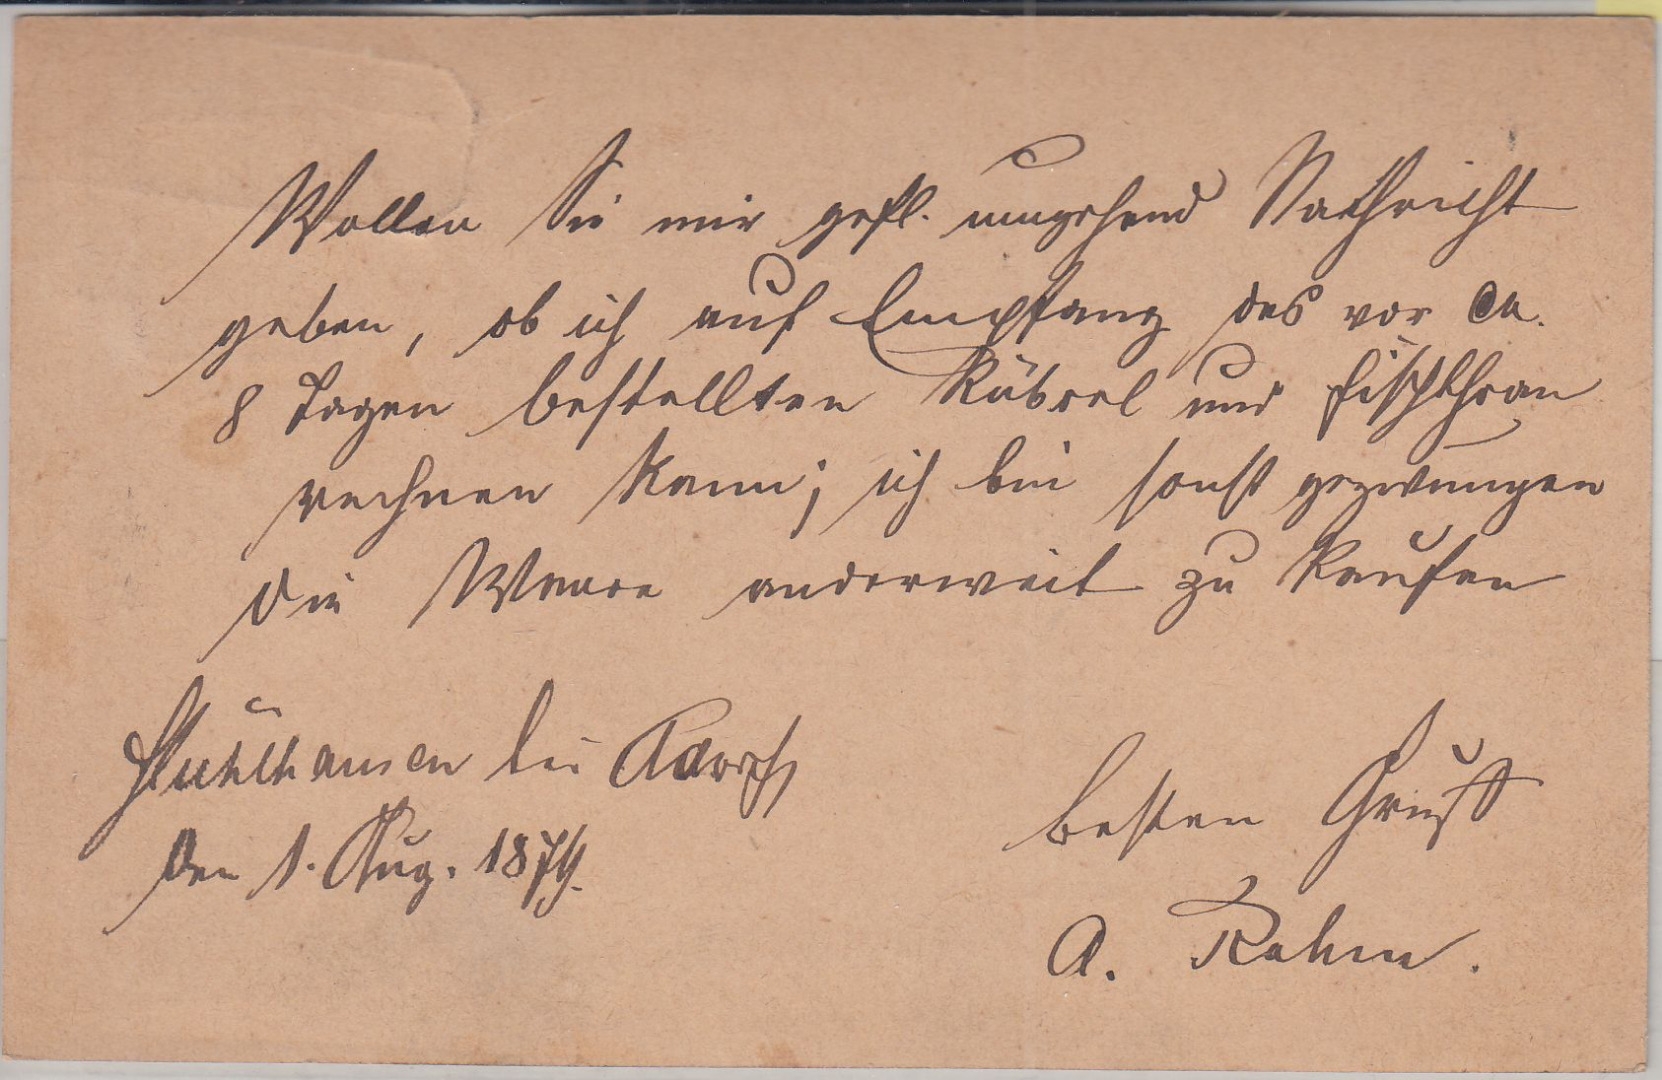 Wollen Sie mir gefl. umgehend Nachricht
geben, ob ich auf Empfang des vor ca.
8 Tagen bestellten Rüböel und Fischthran
rechnen kann; ich bin sonst gezwungen
die Waare anderweit zu kaufen
bei Adorf
den 1. Aug. 1879.
Besten Gruß
A. Rahm.